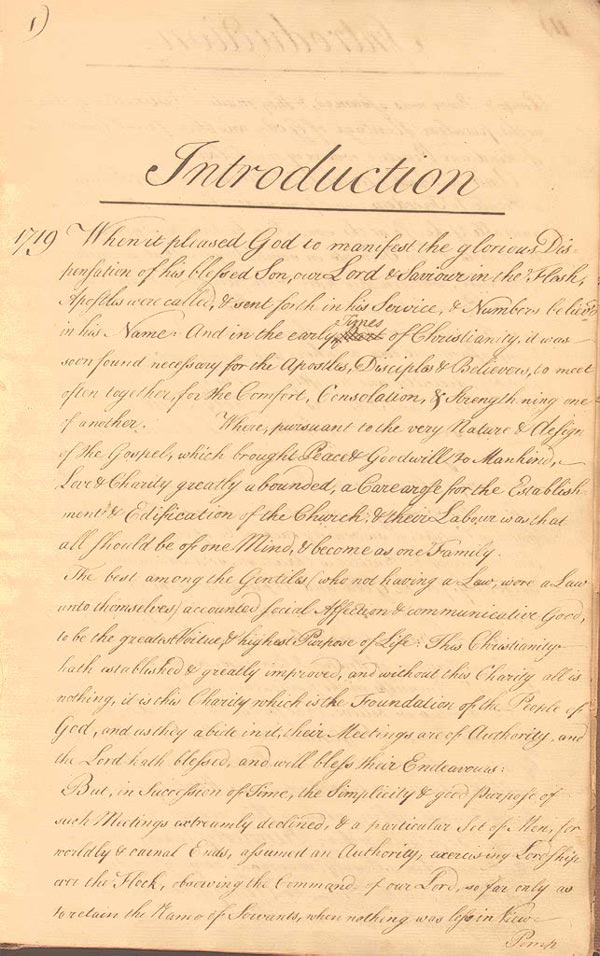 1)
Introduction
1719 When it pleased God to manifest the glorious Dis-
pensation of his blessed Son, our Lord & Saviour in the Flesh,
Apostles were called, & sent forth in his Service, & Numbers believ'd
in his Name: And in the early Times of Christianity, it was
soon found necessary for the Apostles, Disciples & Believers, to meet
often together, for the Comfort, Consolation, & Strength'ning one
of another. Where, pursuant to the very Nature & design
of the Gospel, which brought Peace & Goodwill to Mankind,
Love & Charity greatly abounded, a Care arose for the Establish-
ment & Edification of the Church; & their Labour was that
all should be of one Mind, & become as one Family.
The best among the Gentiles (who not having a Law, were a Law
unto themselves) accounted social Affection & communicative Good,
to be the greatest Virtue, & highest Purpose of Life: This Christianity
hath established & greatly improved, and without this Charity all is
nothing, it is this Charity which is the Foundation of the People of
God, and as they abide in it, their Meetings are of Authority, and
the Lord hath blessed, and will bless their Endeavours:
But, in Succession of Time, the Simplicity & good Purpose of
such Meetings extreamly declined, & a particular Set of Men, for
worldly & carnal Ends, assumed an Authority, exercising Lordship
over the Flock, observing the Command of our Lord, so far only as
to retain the Name of Servants, when nothing was less in View
Pomp